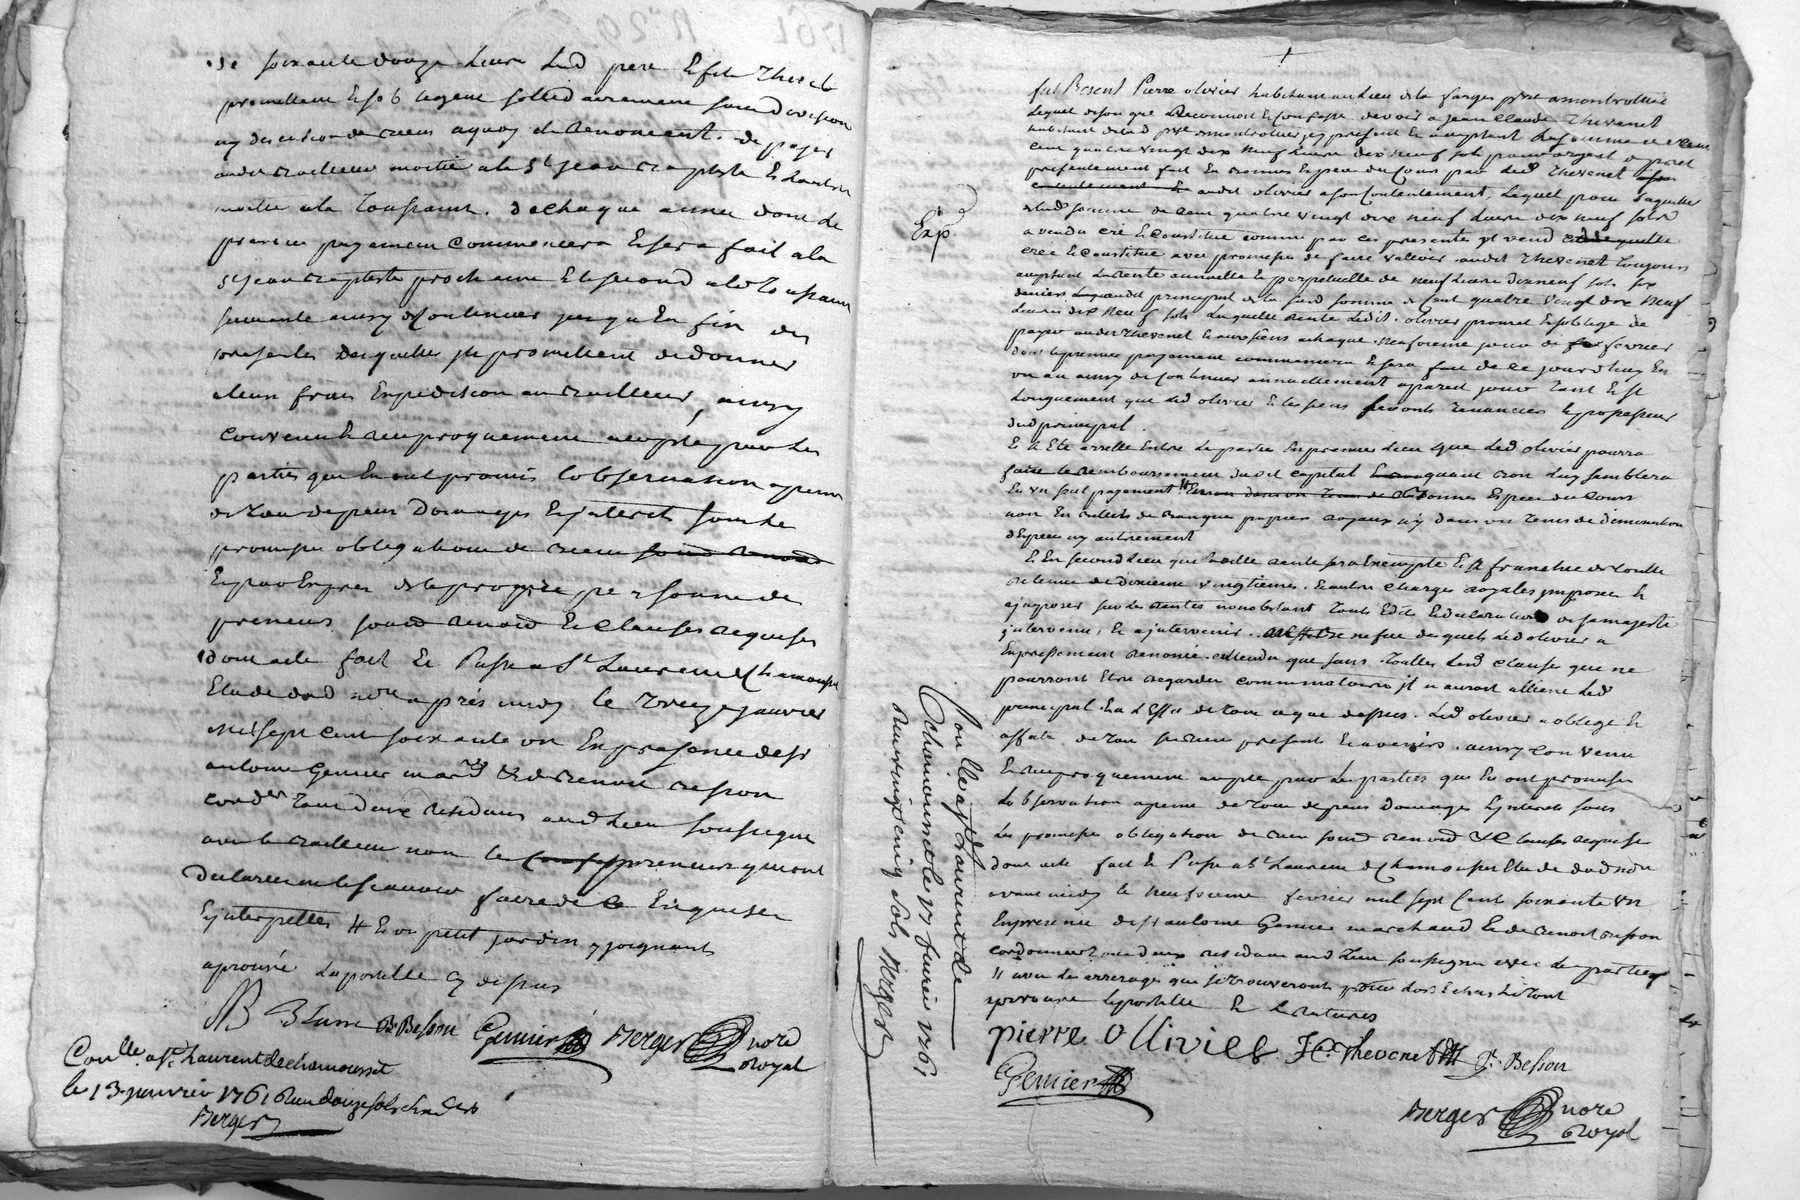 de soixante douze livres led pere & fils Thevenet
promettent & sob ligent sollidairement sans division
ny discution de biens aquoy ils Renoncent. de payer
audit bailleur moitié ala St Jean baptiste & lautre
moitie ala Toussaint. de chaque année dont le
premier payement commencera & sera fait ala
St Jean baptiste prochaine & le second ala Toussaint
suivante ainsy & continuer jusqu a la fin des
presentes desquelles ils promettent de donner
aleurs frais Expedition au bailleur, ainsy
convenu & reciproquement accepté par les
parties qui En ont promis lobservation a peine
de tous depens Domages & jnterets sous les
promesses obligations de biens
Et par Exprés de la propre personne des
preneurs soumd renond & Clauses requises
dont acte fait & Passé a St Laurent de Chamousset
Etude dud nore aprés midy le treize janvier
mil sept cent soixante un En presence de sr
antoine Gemier marchd & de benoit besson
cordier tous deux residants aud lieu soussignés
avec le bailleur non les preneurs qui ont
declaré ne le scavoir faire de ce Enquis &
jnterpellés # & un petit jardin y joignant
aprouvé lapostille cy dessus
B Besson Gemier Berger nore
Royal
Conlle a St Laurent de chamousset
le 13 janvier 1761 Reçu douze sols
Berger
fut Present Pierre olivier habitant au lieu de la farges psse amontrottier
lequel de son gré Reconnoit & confesse devoir a jean Claude Thevenet
habitant dud psse amontrottier jcy present & acceptant la somme de
cent quatre vingt dix neuf livres dix neuf sols pour argent de pret
presentement fait En bonnes Espece du Cours par led Thevenet
audit olivier a son Contentement, Laquel pour s'aquitter
de lad somme de cent quatre vingt dix neuf livres dix neuf sols
a vendu cré & constitué comme par ces presentes jl vend
crée & constitue avec promesse de faire valloir audit Thevenet Toujours
acceptant la Rente annuelle & perpetuelle de neuf livres dixneuf sols six
deniers au principal de la susd somme de Cent quatre vingt dix neuf
livres dix neuf sols laquelle Rente ledit. olivier promet & soblige de
payer audit Thevenet & aux siens achaque. neufvieme jour de fevrier
dont le premier payement commencera & sera fait de ce jourdhuy En
un an ainsy & continuer annuellement apareil jour Tant & si
Longuement que led olivier & les siens seronts Tenanciers & possesseur
dud principal.
Et a Eté arretté Entre les parties En premier lieu que led olivier pourra
faire le remboursement dudit capital quant bon luy semblera
En un seul payement # bonnes Espece du Cours
non En billets de banque papiers royaux n'y dans un tems de diminution
d'Espece ny autrement
Et En second lieu que lad rente sera Exempte & a franchie de toutte
retenue de dixieme vingtiemes. & autre Charges royales jmposées &
ajmposer sur les Rentes nonobstant Touts Edits & declarations de sa majesté
jntervenus, & a jntervenir. au benefice desquels led olivier a
Expressement Renoncé. attendu que sans touttes lesd Clauses que ne
pourront Etre regardées comminatoires jl n'auroit alliené led
principal. En a L'Effet de tout ce que dessus. Led olivier a obligé &
affecté de tous ses biens presents & avenirs. ainsy convenu
& reciproquement accepté par les parties qui En ont promis
Lobservation a peine de tous depens Domages & jnterets sous
les promesses obligation de biens soumd renond & Clauses requises
dont acte fait & Passé a St Laurent de Chamousset Etude dud nore
avant midy le neufvieme fevrier mil sept Cent soixante un
En presence de sr antoine Gemier marchand & de benoit besson
cordonnier tous deux residants aud lieu soussignés avec les parties
# avec les arrerages que se trouveronts pour lors Echus
aprouvé lapostille & les ratures
pierre Ollivier J C Thevenet B. Besson
Gemier
Berger nore
Royal
Exp
Conlle a St Laurent de
Chamousset le 17 fevrier 1761
Reçu vingt cinq sols Berger